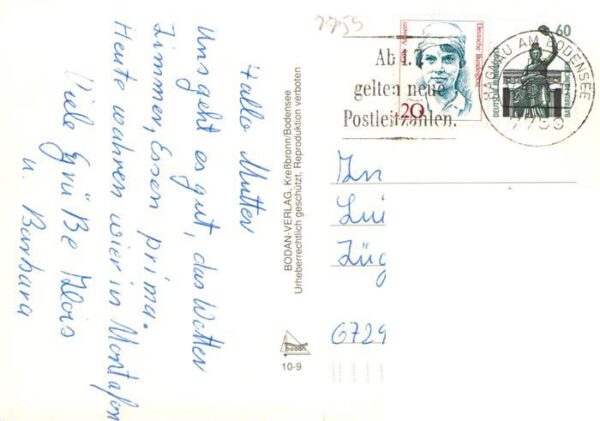 Hallo Mutter
Uns geht es gut, das Wetter
Zimmer, Essen prima.
Heute wahren wier in Montafon
Viele Grüße Alois
u. Barbara
BODAN-VERLAG, Kreßbronn/Bodensee
Urheberrechtlich geschützt, Reproduktion verboten
10-9
7759
Ab 1.7.
gelten neue
Postleitzahlen.
20
Deutsche Bundespost
60
DEUTSCHE BUNDESPOST
BAVARIA MÜNCHEN
HAGNAU AM BODENSEE
7759
In
Lui
Züg
6729